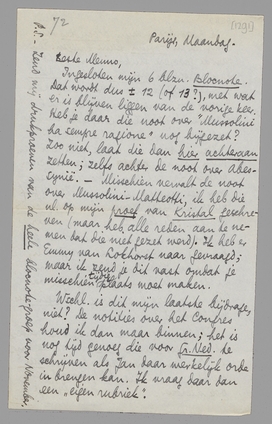 72
[1291]
Parijs, Maandag.
Beste Menno,
Ingesloten mijn 6 blzn. Blocnote.
Dat wordt dus ± 12 (of 13?), met wat
er is blijven liggen van de vorige keer.
Heb je daar die noot over "Mussolini
ha sempre ragione" nog bijgezet?
Zoo niet, laat die dan hier achteraan
zetten; zelfs achter de noot over Abes-
synië. – Misschien vervalt de noot
over Mussolini-Matteotti; ik heb die
nl. op mijn proef van Kristal geschre-
ven (maar heb alle reden aan te ne-
men dat die niet gezet werd). Ik heb er
Emmy van Lokhorst naar gevraagd;
maar ik zend je dit vast omdat je
misschien tijdig plaats moet maken.
Wschl. is dit mijn laatste bijdrage,
niet? De notities over het Congres
houd ik dan maar binnen; het is
nog tijd genoeg die voor Gr. Ned. te
schrijven als Jan daar werkelijk orde
in brengen kan. Ik vraag daar dan
een "eigen rubriek".
P.S. – Zend mij drukproeven van de heele blocnote-proef voor November.